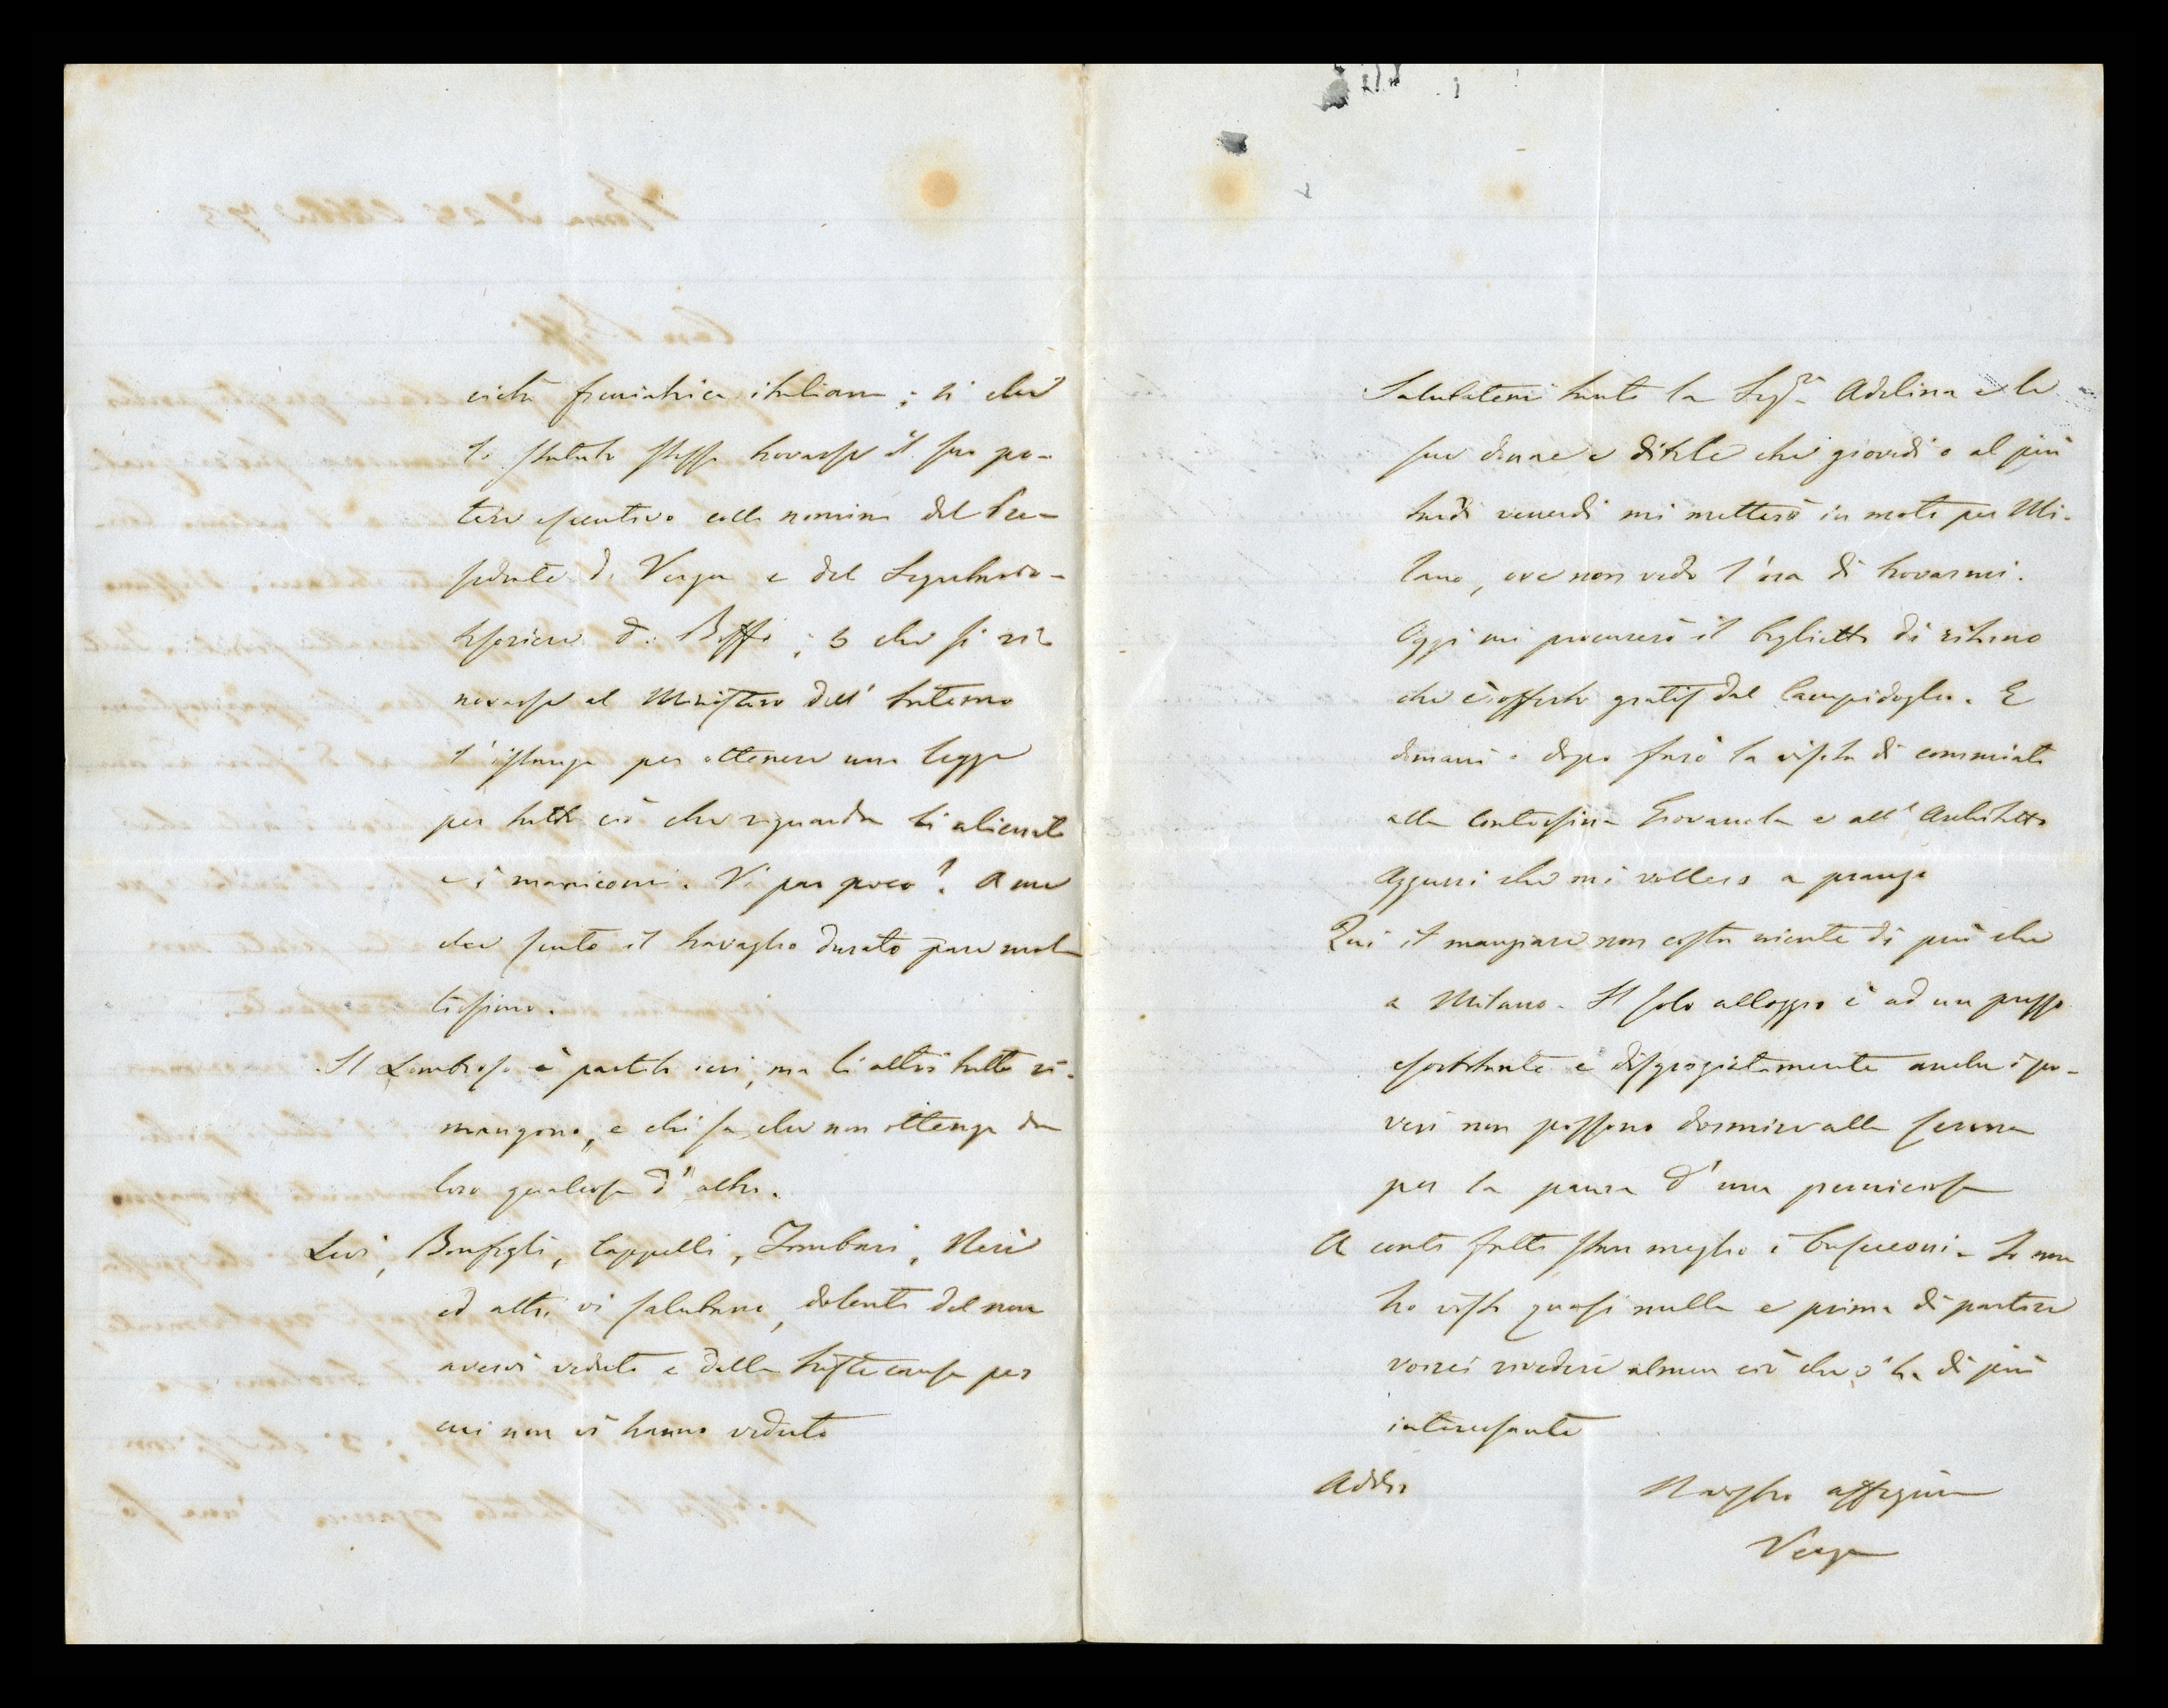 cietà freniatrica italiana; si che
lo statuto stesso trovasse il suo po-
tere esecutivo colla nomina del Pre-
sidente D. Verga e del Segretario-
tesoriere D. Biffi; 5 che si rin
novasse al Ministero dell' Interno
l' istanza per ottenere una legge
per tutto ciò che riguarda li alienati
e i manicomi. Vi par poco? A me
che sento il travaglio durato pare mol
tissimo.
Il Lombroso è partito ieri, ma li altri tutti ri-
mangono, e chi sa che non ottenga da
loro qualcosa d' altro.
Livi, Bonfigli, Cappelli, Zombari, Neri
ed altri vi salutano, dolenti del non
avervi veduto e della triste causa per
cui non vi hanno veduto
Salutatemi tanto la Sigra Adelina e le
sue donne e ditele che giovedì o al più
tardi venerdì mi metterò in moto per Mi-
lano, ove non vedo l'ora di trovarmi.
Oggi mi procurerò il biglietto di ritorno
che è offerto gratis dal Campidoglio. E
domani o dopo farò la visita di commiato
alla Contessina Giovanola e all' Architetto
Azzurri che mi vollero a pranzo
Qui il mangiare non costa niente di più che
a Milano. Il solo alloggio è ad un prezzo
esorbitante e disgraziatamente anche i po-
veri non possono dormire alla serena
per la paura d' una perniciosa
A conti fatti stan meglio i buseconi. Io non
ho visto quasi nulla e prima di partire
vorrei vedere almen ciò che v' ha di più
interessante
Addio
Il vostro affezmo
Verga